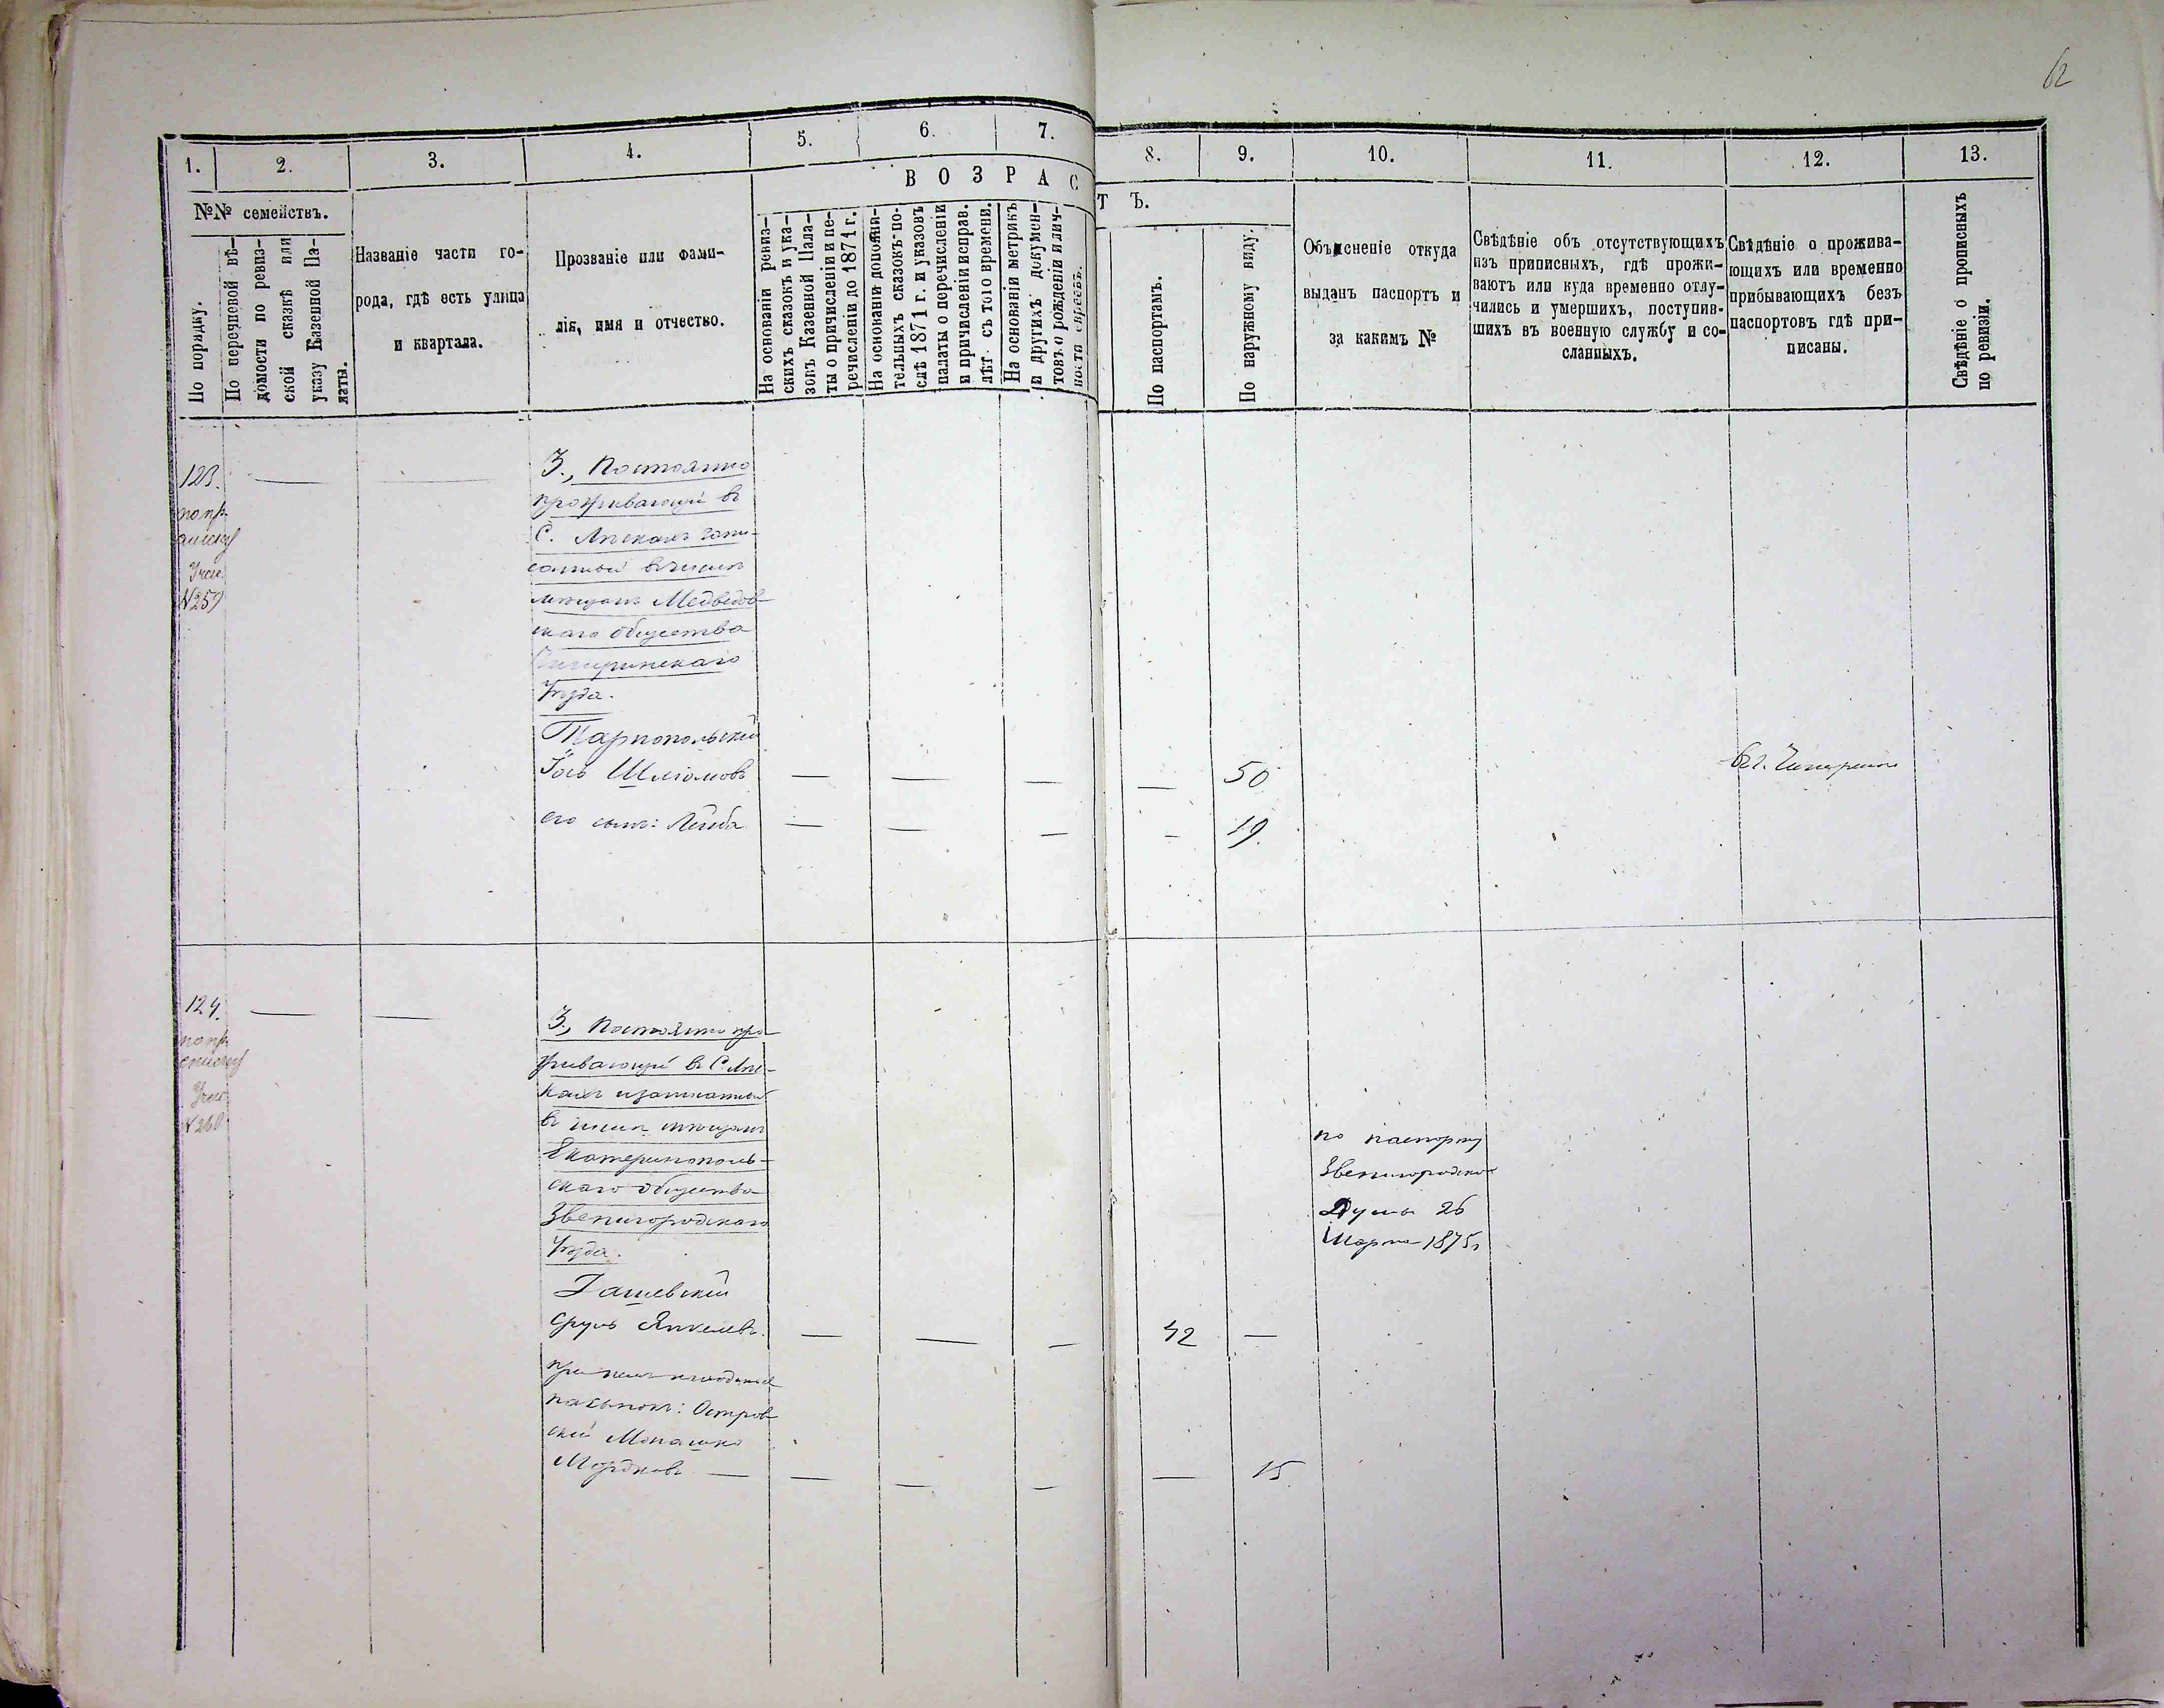 62
1.
2.
3.
4.
5.
6.
7.
8.
9.
10.
11.
12.
13.
№№ семействъ.
По порядку.
По перечневой вѣ-
домости по ревиз-
ской сказкѣ или
указу Казенной Па-
латы.
Названіе части го-
рода, гдѣ есть улица
и квартала.
Прозваніе или фами-
лія, имя и отчество.
ВОЗРАСТЪ.
На основаніи ревиз-
скихъ сказокъ и ука-
зовъ Казенной Пала-
ты о причисленіи и пе-
речисленіи до 1871 г.
На основаніи дополни-
тельныхъ сказокъ по-
слѣ 1871 г. и указовъ
палаты о перечисленіи
и причисленіи исправ.
лѣт. съ того времени.
На основаніи метрикъ
и другихъ докумен-
товъ о рожденіи и лич-
ности евреевъ.
По паспортамъ.
По наружному виду.
Объясненіе откуда
выданъ паспортъ и
за какимъ №
Свѣдѣніе объ отсутствующихъ
изъ приписныхъ, гдѣ прожи-
ваютъ или куда временно отлу-
чились и умершихъ, поступив-
шихъ въ военную службу и со-
сланныхъ.
Свѣдѣніе о прожива-
ющихъ или временно
прибывающихъ безъ
паспортовъ гдѣ при-
писаны.
Свѣдѣніе о прописныхъ
по ревизіи.
123.
по пр.
списку
№259
3., Постоянно
проживающій въ
С. Липскахъ запи-
санный въ числѣ
мѣщанъ Медведов-
скаго общества
Чигиринскаго
Уѣзда.
Тарнопольскій
Іось Шліомовъ
50
въ г. Чигиринѣ
его сынъ: Лейба
19.
124.
по пр.
списку
№260
3., Постоянно про-
живающій въ С.
записанный
въ числѣ мѣщанъ
Екатеринополь-
скаго общества
Звенигородскаго
Уѣзда.
по паспорту
Звенигородской
Думы 26
Марта 1875 г.
Дашевскій
Сруль Янкелевъ.
42
при немъ
пасынокъ: Остров-
скій Монашко
Мордковъ
15